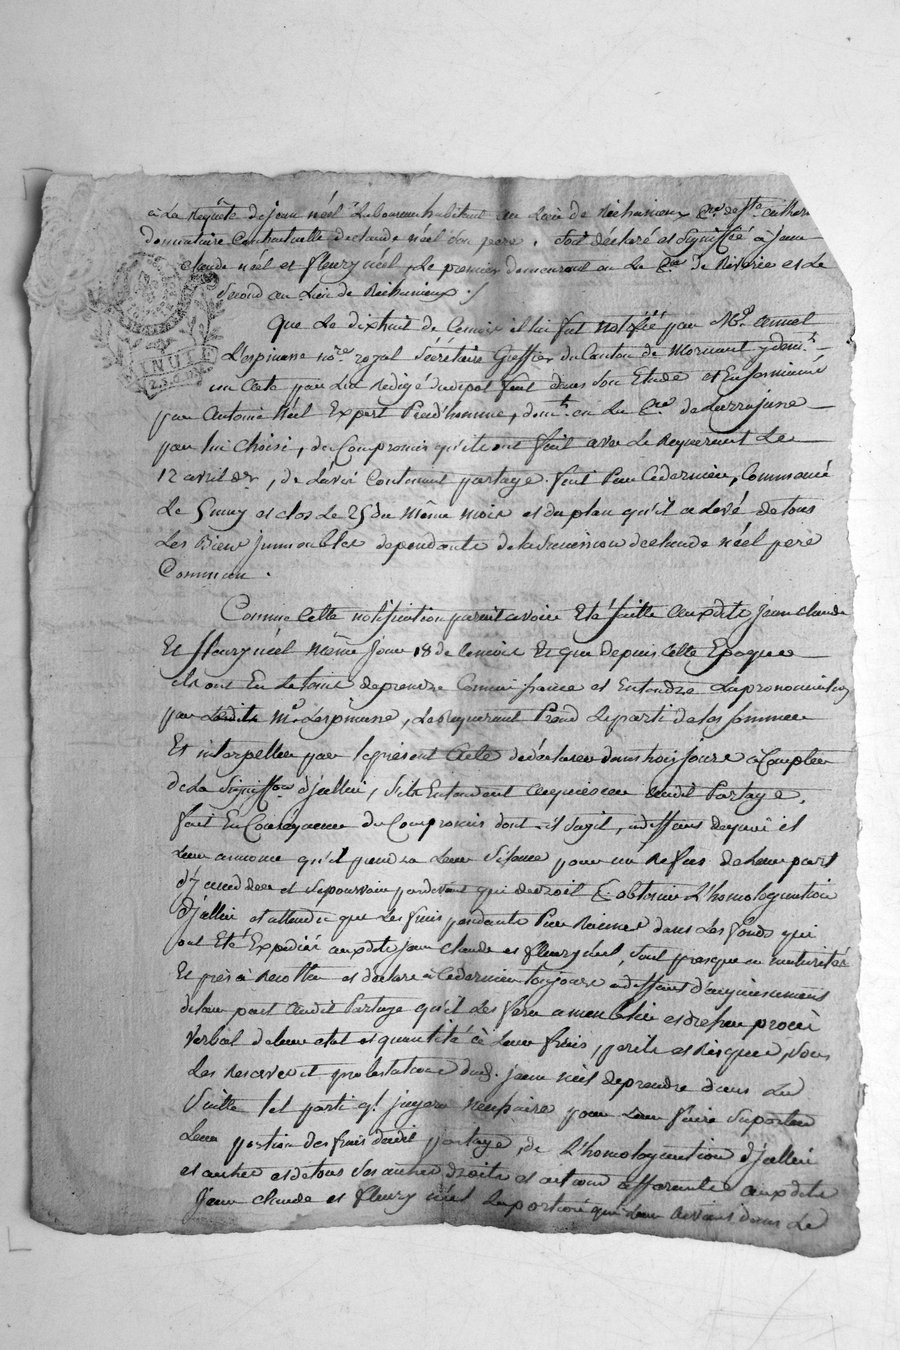 à La Requête de jean néel Laboureur habitant au Lieu de Richanieux Cne de Ste Catherine
donnataire Contractuelle de claude néel Son pere, Soit déclaré et Signiffié à jean
claude néel et fleury néel, Le premier demeurant en La Cne de Riverie et Le
Second au Lieu de Richanieux ./
Que Le dixhuit de Cemois il lui fut Notifié par Me
Lespinasse nore royal Secrétaire Greffier du Canton de Mornant y demt
un acte par Lui Redigé du depot fait dans Son Etude
par Antoine Néel Expert Prud'homme, demt en La Cne de
par lui Choisi, du Compromis qu'ils ont fait avec Le Requerant Le
12 avril der, de L'avis Contenant partage fait Par Cedernier, Commencé
Le 5 may et clos Le 25 du Même mois et du plan qu'il a Levé de tous
Les Biens jmmeubles dependants de la Sucession de claude néel pere
Commun.
Comme Cette notification parait avoir Eté faitte auxdits jean claude
Et fleury néel même jour 18 de Cemois Et que depuis Cette Epoque
ils ont Eu Le tems de prendre Connoissance et Entendre
par Ledit Me Lespinasse, Le Requerant Prend Le parti de Les sommer
Et interpeller par le présent acte de déclarer dans trois jours à Compter
de La Signiffon d'jcellui, S'ils Entendent acquiescer audit Partage,
fait En Consequence du Compromis dont il S'agit, à deffaut de quoi il
Leur annonce qu'il prendra Leur Silence pour un Refus de Leur part
d'y acceder et Se pourvoira pardevant qui de droit & obtenir L'homologation
d'jcellui et attendu que Les fruits pendants Par Racines dans Les fonds qui
ont Eté Expediés auxdits jean claude et fleury néel, Sont presque en maturité
Et près à Recolter et declare à Cedernier toujours à deffaut d'acquiescement
de leur part audit Partage qu'il Les fera
Verbal de leur etat et quantité à Leur frais, perils et Risques, Sous
Les Reserves et protestations dud. jean néel de prendre dans La
Suitte tel parti q'il jugera necessaire pour Leur faire Suporter
Leur portion des frais dudit partage, de L'homologuation d'jcellui
et autres et de tous Ses autres droits et actions afferants auxdits
jean claude et fleury néel La portion qui Leur Revient dans Le